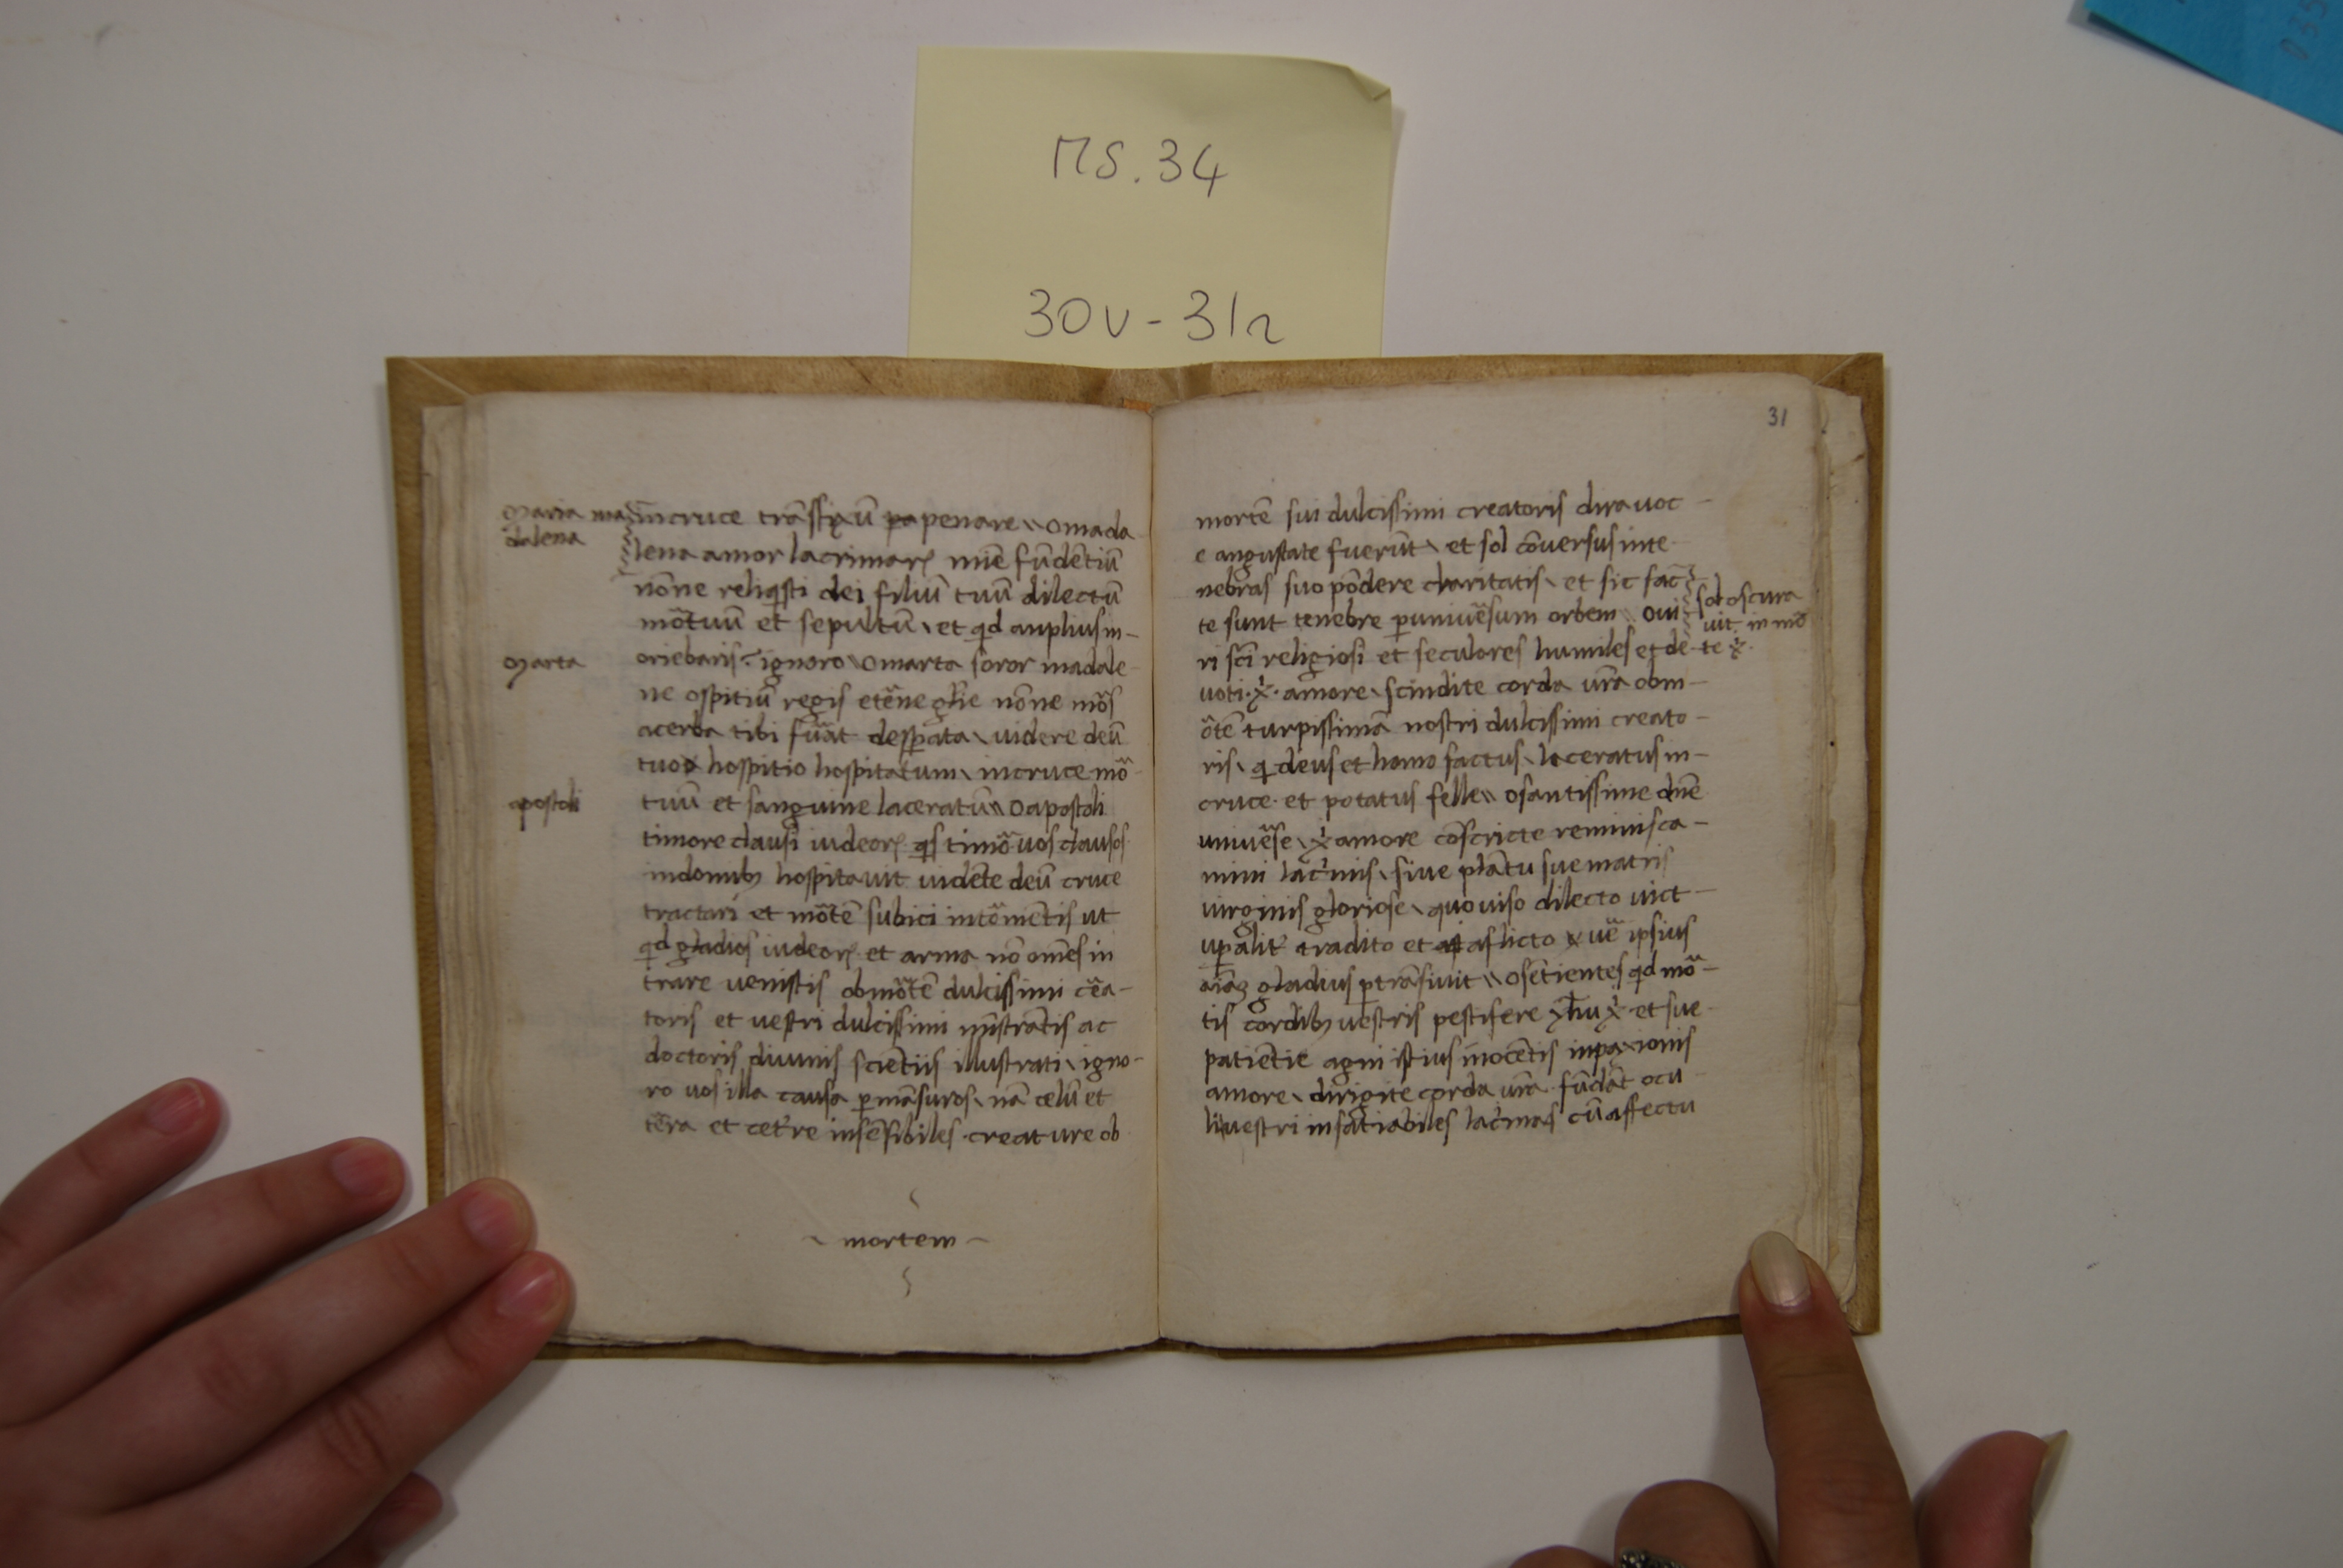 MS. 34
30v - 31r
31
maria ma
dalena
in cruce trāsfixū penare o mada
lena amor lacrimarꝝ mīe fūdētiū
nōne reliqsti dei filiū tuū dilectū
mōtuū et sepultū et qd anplius m-
oriebaris ignoro o marta soror madale-
marta
ne ospitiū regis etēne glīe nōne mōs
acerba tibi fuāt desperata videre deū
tuo hospitio hospitatum in cruce mō-
tuū et sanguine laceratū o apostoli
apostoli
timore clausi iudeorꝝ qs timō vos clausos
in domibꝫ hospitavit vidēte deū cruce
tractari et mōtē subici in tōmētis ut
qd gladios iudeorꝝ et arma nō omēs in
trare venistis ob mōtē dulcissimi cēa-
toris et vestri dulcissimi mīstrātis ac
doctoris divinis sciētiis illustrati igno-
ro vos illa causa ꝑmāsuros nā celū et
tēra et cetere insēsibiles creature ob
mortem
mortē sui dulcissimi creatoris dira voc-
e angustate fuerūt et sol cōversus in te-
nebras suo pōdere charitatis et sic fac-
te sunt tenebre ꝑ univēsum orbem o vi
sol oscura
vit in mō
te x̄
ri scī religiosi et seculores humiles et de
voti x̄ amore scindite corda vrā ob m-
ōtē turpissimā nostri dulcissimi creato-
ris qi deus et homo factus laceratus in-
cruce et potatus felle o santissime dnē
univēse x̄ amore cōscricte reminisca-
mini lacimis sive plātu sue matris
virginis gloriose quo viso dilecto vict-
uꝑalit tradito et aflicto vē ipsius
aīaꝫ gladius ꝑtrāsivit o sētientes qd mō-
tis cordibꝫ vestris pestifere yhū x̄ et sue
patiētie agni istius inocētis in paxionis
amore dirigite corda vrā fūdāt ocu
li vestri insatiabiles lacimas cū affectu